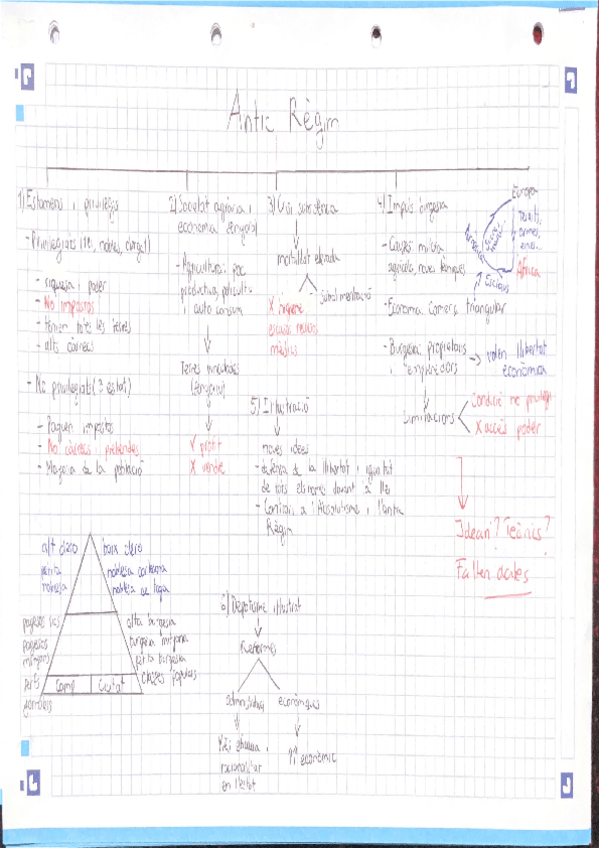 Antic Règim
1) Estaments i privilegis
- Privilegiats (rei, nobles, clergat)
- riquesa i poder
- No impostos
- tenien totes les terres
- alts càrrecs
- No privilegiats (3 estat)
- Paguen impostos
- No càrrecs i
- Majoria de la població
alt clero
petita
noblesa
baix clero
noblesa cortesana
noblesa de toga
pagesos rics
pagesos
mitjans
petits
alta burgesia
burgesia mitjana
petita burgesia
classes populars
Camp
Ciutat
2) Societat agrària i
economia senyorial
- Agricultura: poc
productiva, policultiu
i auto consum
Terres vinculades
(senyoriu)
✓ profit
X vendre
3) Crisi subsistència
mortalitat elevada
X higiene
escassos recursos
mèdics
subalimentació
4) Impuls burgesia
- Causes: millora
agrícola, noves tècniques
- Economia: Comerç triangular
- Burgesia: propietaris
i emprenedors
volen llibertat
econòmica
Limitacions
Condició no privilegi
X accés poder
Europa
Teixits,
armes,
eines...
Àfrica
Esclaus
Idean? Teònics?
Falten dates
5) Il·lustració
noves idees
- defensa de la llibertat i igualtat
de tots els homes davant la llei
- Contraris a l'Absolutisme i l'Antic
Règim
6) Despotisme il·lustrat
Reformes
administratives
econòmiques
racionalitzar
en l'estat
↑↑ econòmic